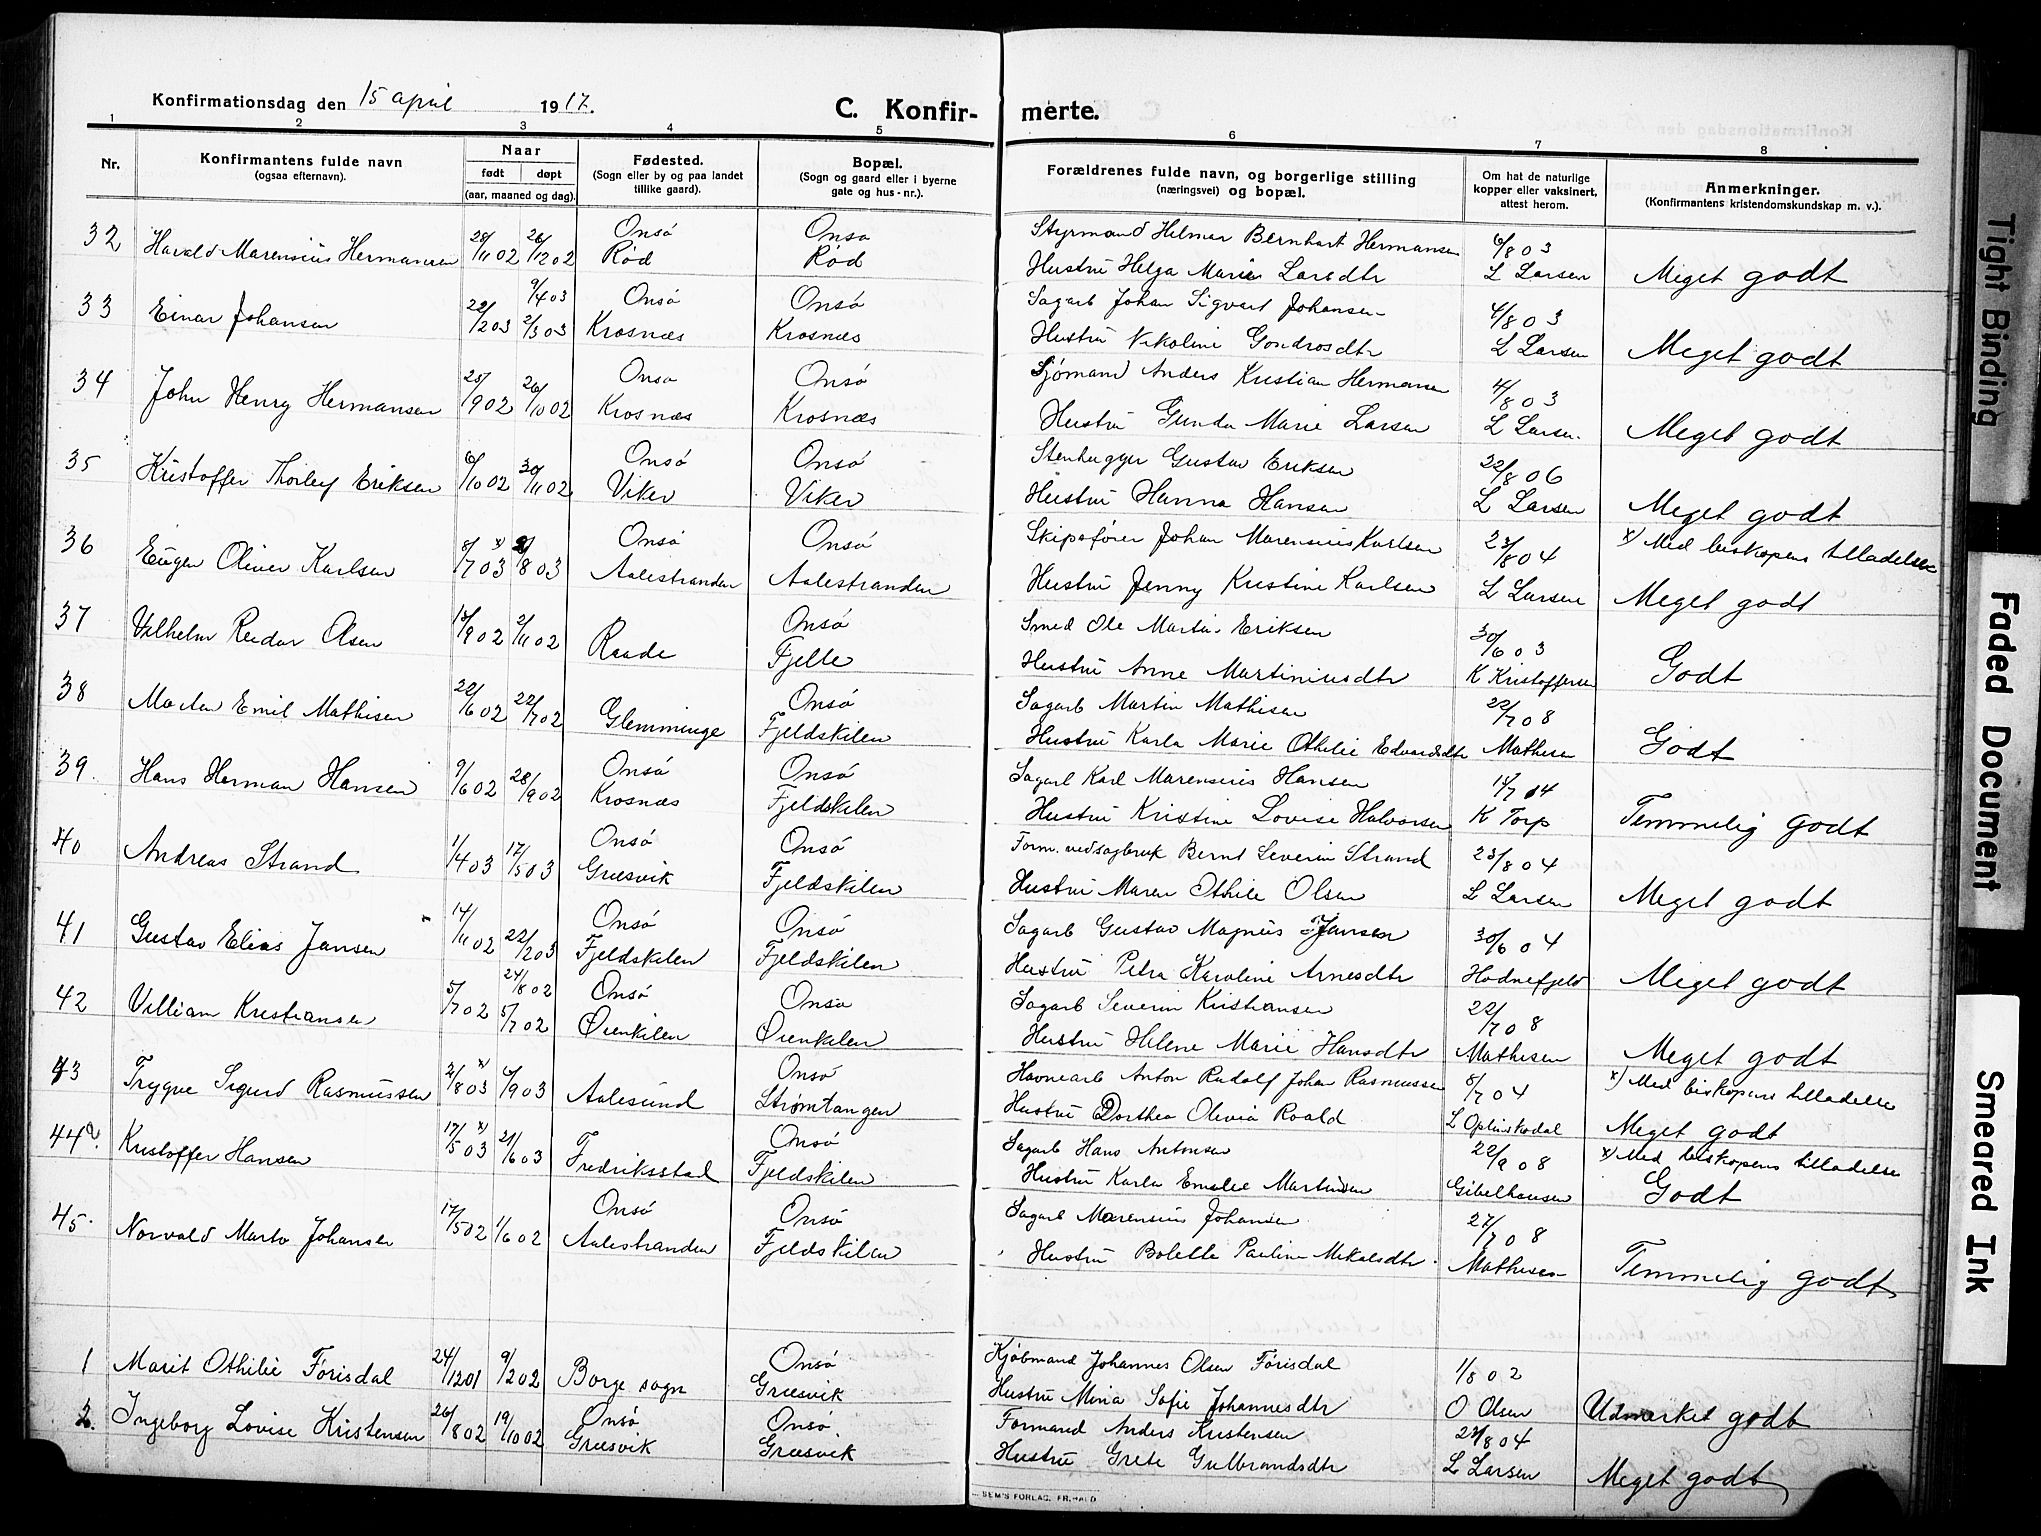 Konfirmationsdag den 15 april 1917.
C. Konfir-
merte.
1 2 3 4 5 6 7 8
Nr.
Konfirmantens fulde navn
(ogsaa efternavn).
Naar
født døpt
(aar, maaned og dag).
Fødested.
(Sogn eller by og paa landet
tillike gaard).
Bopæl.
(Sogn og gaard eller i byerne
gate og hus-nr.).
Forældrenes fulde navn, og borgerlige stilling
(næringsvei) og bopæl.
Om hat de naturlige
kopper eller vaksinert,
attest herom.
Anmerkninger.
(Konfirmantens kristendomskundskap m. v.).
32 Harald Marensius Hermansen 28/11 02 26/12 02 Onsø Rød Onsø Rød
Styrmand Helmer Bernhart Hermansen 6/8 03
Hustru Helga Marie Larsdtr L Larsen Meget godt
33 Einar Johansen 22/2 03 9/4 03 2/3 03 Onsø Krosnæs Onsø Krosnæs
Sagarb Johan Sigvart Johansen 4/8 03
Hustru Nikoline Gondrosdtr L Larsen Meget godt
34 John Henry Hermansen 25/9 02 26/10 02 Onsø Krosnæs Onsø Krosnæs
Sjømand Anders Kristian Hermansen 4/8 03
Hustru Gunda Marie Larsen L Larsen. Meget godt
35 Kristoffer Thorleif Eriksen 6/10 02 30/11 02 Onsø Viker Onsø Viker
Stenhugger Gustav Eriksen 22/8 06
Hustru Hanna Hansen L Larsen Meget godt
36 Eugen Oliver Karlsen 8/7 03 x) /8 03 Onsø Aalestranden Onsø Aalestranden
Skipsfører Johan Marensius Karlsen 23/8 04 x) Med biskopens tilladelse
Hustru Jenny Kristine Karlsen L Larsen Meget godt
37 Vilhelm Reidar Olsen 13/9 02 2/11 02 Raade Onsø Fjelle
Smed Ole Martin Eriksen 30/6 03
Hustru Anne Martiniusdtr K Kristoffersen Godt
38 Morten Emil Mathisen 22/6 02 22/7 02 Glemminge Onsø Fjeldskilen
Sagarb Martin Mathisen 22/7 08
Hustru Karla Marie Othilie Edvardsdtr Mathisen Godt
39. Hans Herman Hansen 9/6 02 28/9 02 Onsø Krosnæs Onsø Fjeldskilen
Sagarb Karl Marensius Hansen 14/7 04
Hustru Kristine Lovise Halvorsen K Torp Temmelig godt
40 Andreas Strand 1/4 03 17/5 03 Onsø Græsvik Onsø Fjeldskilen
Form. ved sagbruk Bernt Severin Strand 23/8 04
Hustru Maren Othile Olsen L Larsen Meget godt
41 Gustav Elias Jansen 14/11 02 22/2 03 Onsø Fjeldskilen Onsø Fjeldskilen
Sagarb Gustav Magnus Jansen 30/6 04
Hustru Petra Karoline Arnesdtr Hodnefjeld Meget godt
42 Villiam Kristiansen 5/7 02 24/8 02 5/7 02 Onsø Ørenkilen Onsø Ørenkilen
Sagarb Severin Kristiansen 22/7 08
Hustru Helene Marie Hansdtr Mathisen Meget godt
43 Trygve Sigurd Rasmussen 2/8 03 x) 6/9 03 Aalesund Onsø Strømtangen
Havnearb Anton Rudolf Johan Rasmussen 8/7 04 x) Med biskopens tilladelse
Hustru Dorthea Olevia Roald Meget godt
44 Kristoffer Hansen 17/5 03 x) 21/6 03 Fredriksstad Onsø Fjeldskilen
Sagarb Hans Antonsen 22/9 08 x) Med biskopens tilladelse
Hustru Karla Emelie Martinsen Gibelhausen Godt
45. Norvald Marto Johansen 17/5 02 1/6 02 Onsø Aalestranden Onsø Fjeldskilen
Sagarb Marensius Johansen 27/7 08
Hustru Bolette Pauline Mikalsdtr. Mathisen Temmelig godt
1 Marit Othilie Førisdal 24/12 01 9/2 02 Borge sogn Onsø Græsvik
Kjøbmand Johannes Olsen Førisdal 1/8 02
Hustru Mina Sofie Johannesdtr O Olsen Udmerket godt
2. Ingeborg Lovise Kristensen 26/8 02 19/10 02 Onsø Græsvik Onsø Græsvik
Formand Anders Kristensen 23/8 04
Hustru Grete Gulbrandsdtr L Larsen Meget godt
SEM'S FORLAG, FR.HALD
Tight Binding
Faded Document
Smeared Ink